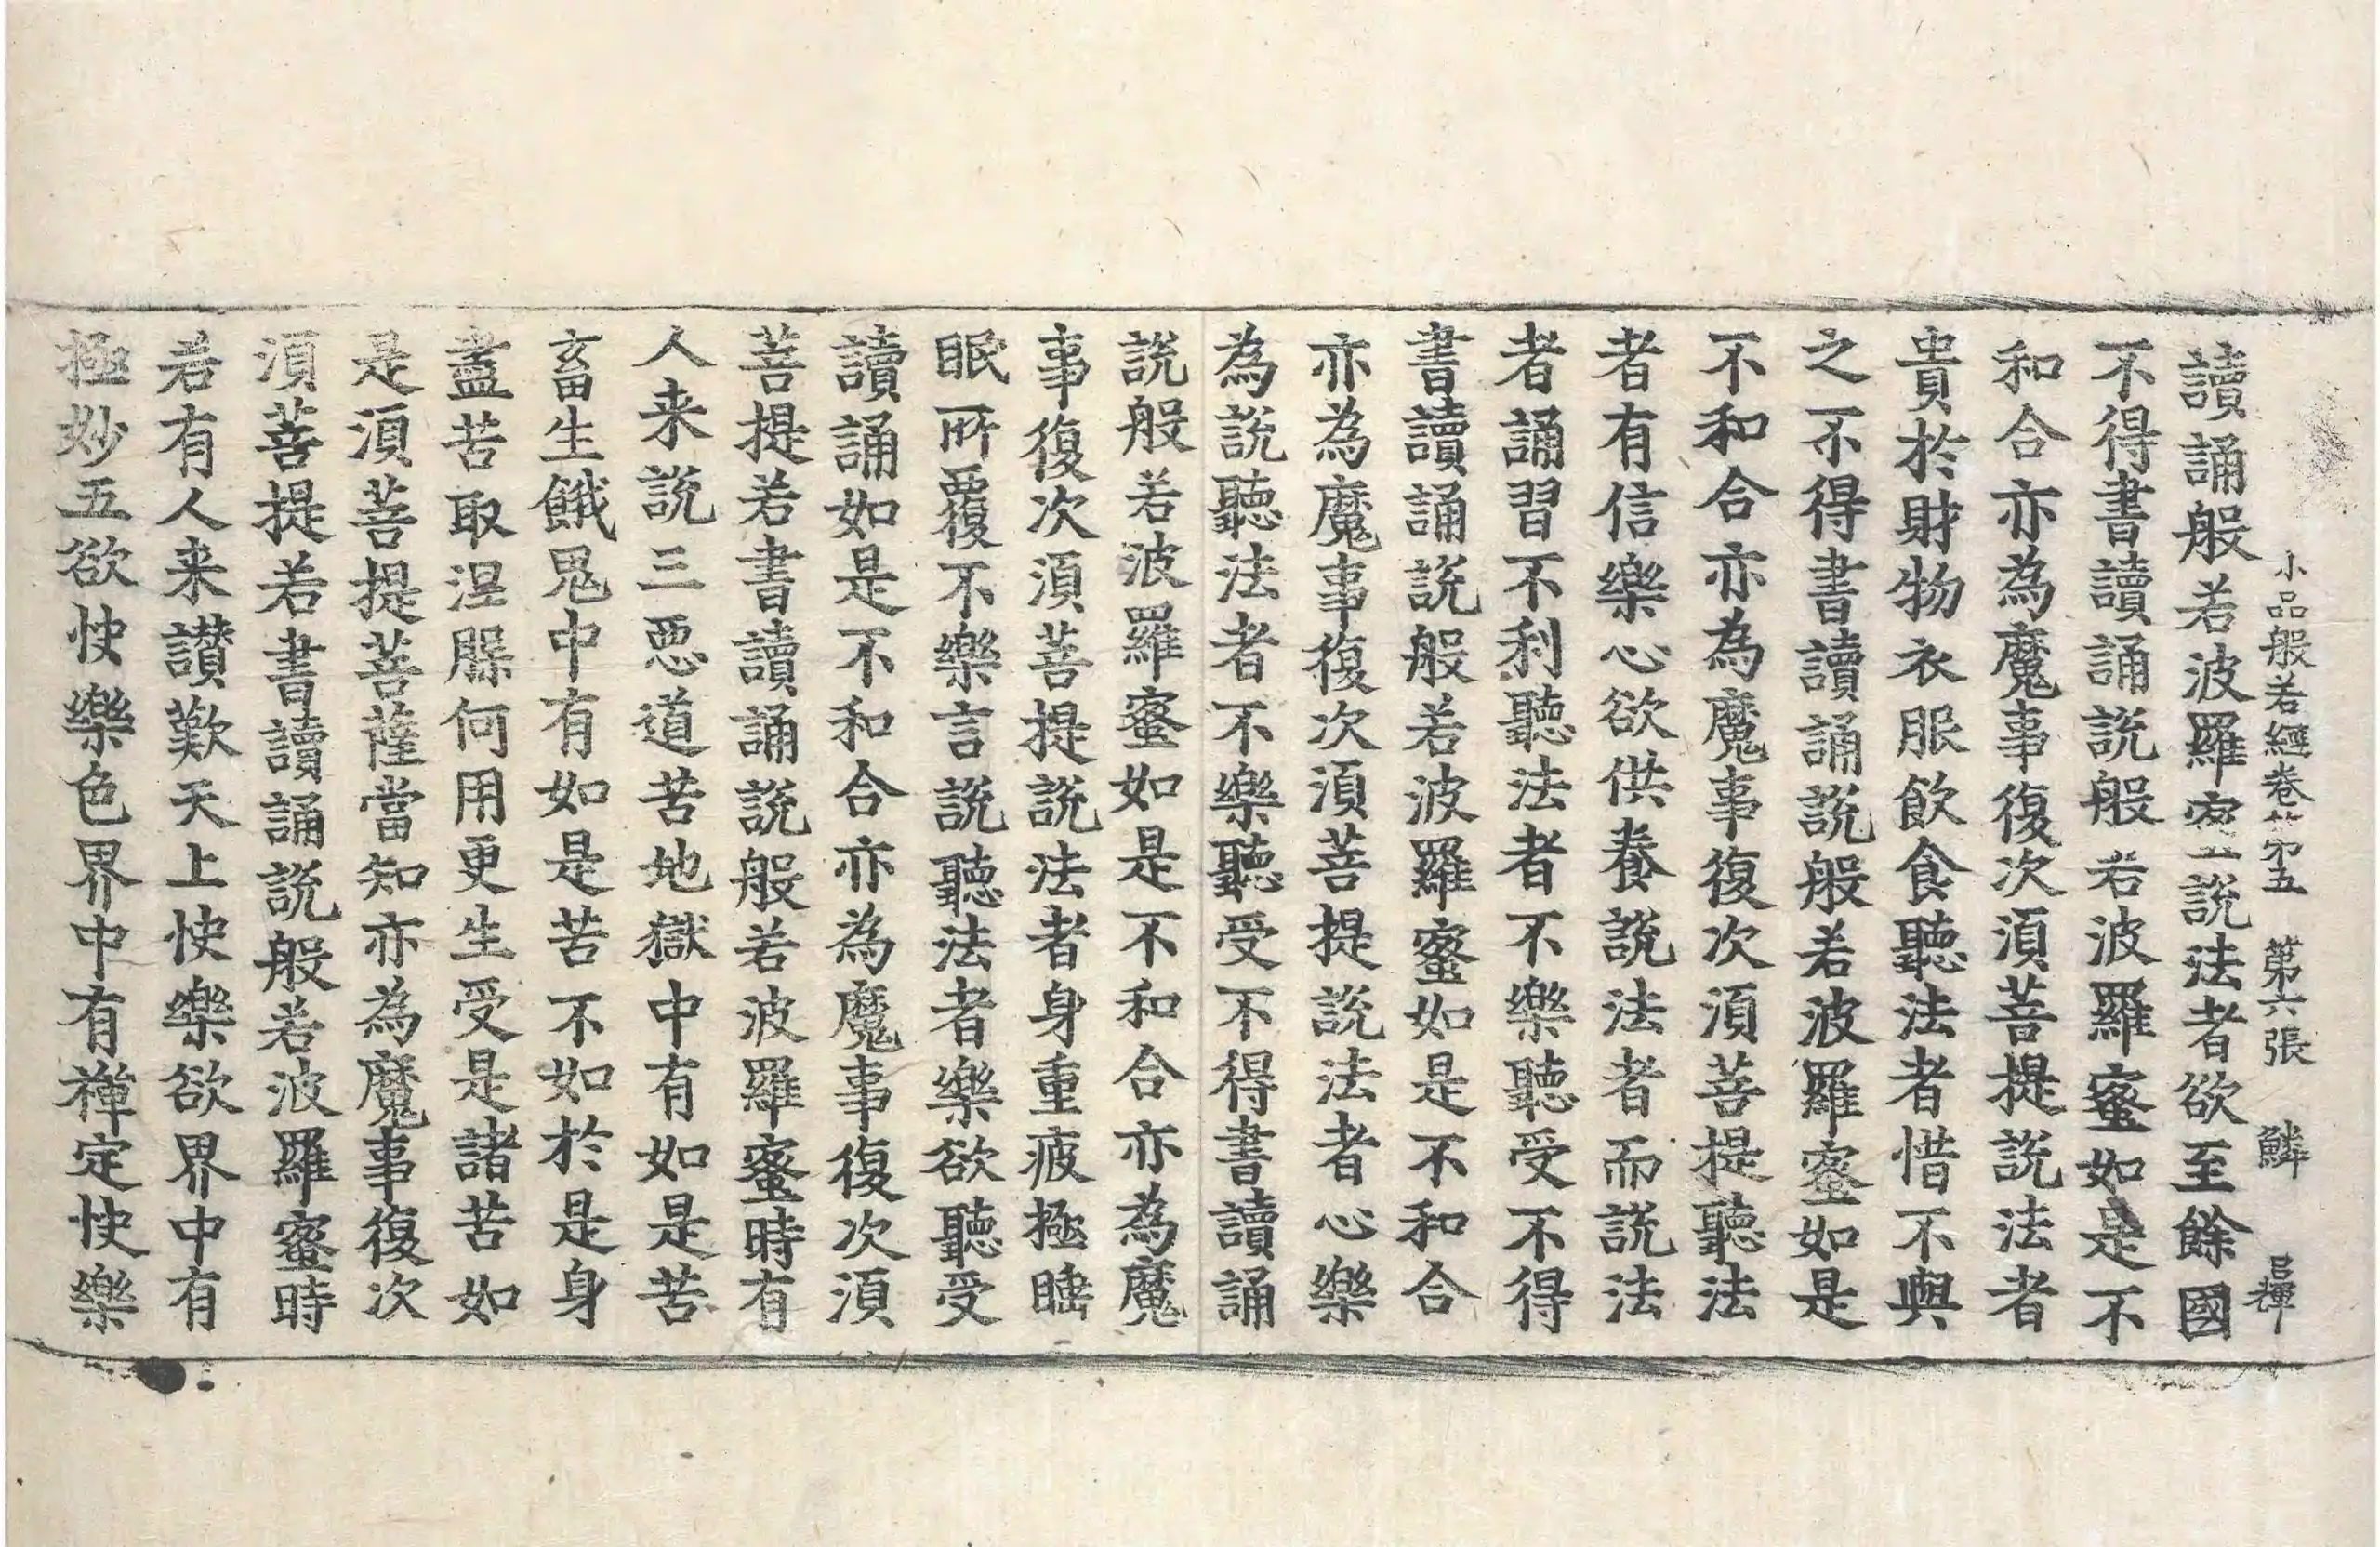 小品般若經卷第五 第六張 鱗
讀誦般若波羅蜜說法者欲至餘國
不得書讀誦說般若波羅蜜如是不
和合亦為魔事復次湏菩提說法者
貴於財物衣服飲食聽法者惜不與
之不得書讀誦說般若波羅蜜如是
不和合亦為魔事復次湏菩提聽法
者有信樂心欲供養說法者而說法
者誦習不利聽法者不樂聽受不得
書讀誦說般若波羅蜜如是不和合
亦為魔事復次湏菩提說法者心樂
為說聽法者不樂聽受不得書讀誦
說般若波羅蜜如是不和合亦為魔
事復次湏菩提說法者身重疲極睡
眠所覆不樂言說聽法者樂欲聽受
讀誦如是不和合亦為魔事復次湏
菩提若書讀誦說般若波羅蜜時有
人来說三惡道苦地獄中有如是苦
畜生餓鬼中有如是苦不如於是身
盡苦取涅槃何用更生受是諸苦如
是湏菩提菩薩當知亦為魔事復次
湏菩提若書讀誦說般若波羅蜜時
若有人来讃歎天上快樂欲界中有
極妙五欲快樂色界中有禪定快樂